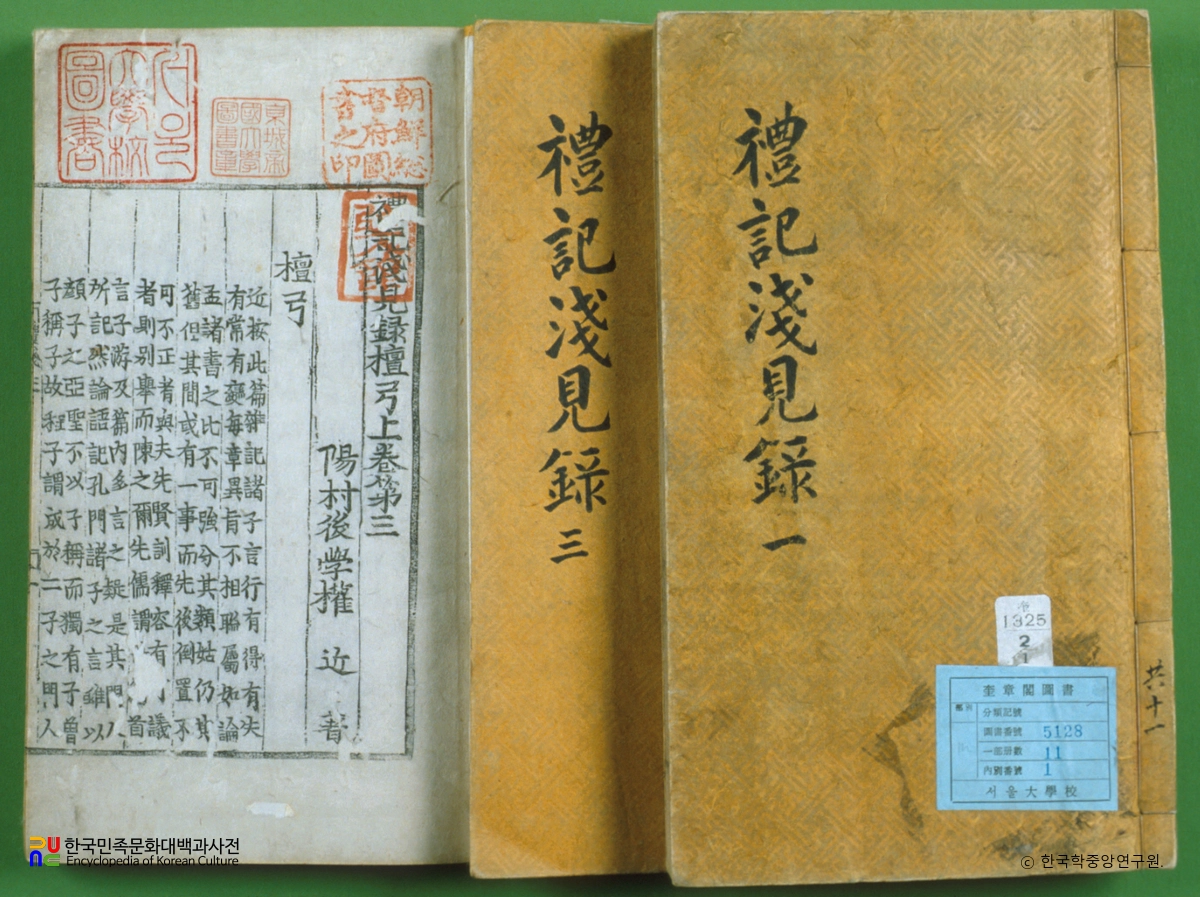 서울
大學校
圖書
京城帝
國大學
圖書章
朝鮮総
督府圖
書之印
禮記淺見録檀弓上卷第三
陽村後學權 近 著
檀弓
近按此篇雜記諸子言行有得有失
有常有變每章異旨不相聯屬如論
孟諸書之比不可強分其類姑仍其
舊但其間或有一事而先後倒置不
可不正者與夫先賢訓釋容有 議
者則別舉而陳之爾先儒謂 首
言子游及篇内多言之疑是其門人
所記然論語記孔門諸子之言雖以
顔子之亞聖不以子稱而獨有子曾
子稱子故程子謂成於二子之門人
禮記淺見録 三
禮記淺見録 一
共十一
1325
2
1
奎章閣圖書
分類記號
圖書番號 5128
一部册數 11
内別番號 1
서울大學校
한국민족문화대백과사전
Encyclopedia of Korean Culture
© 한국학중앙연구원.